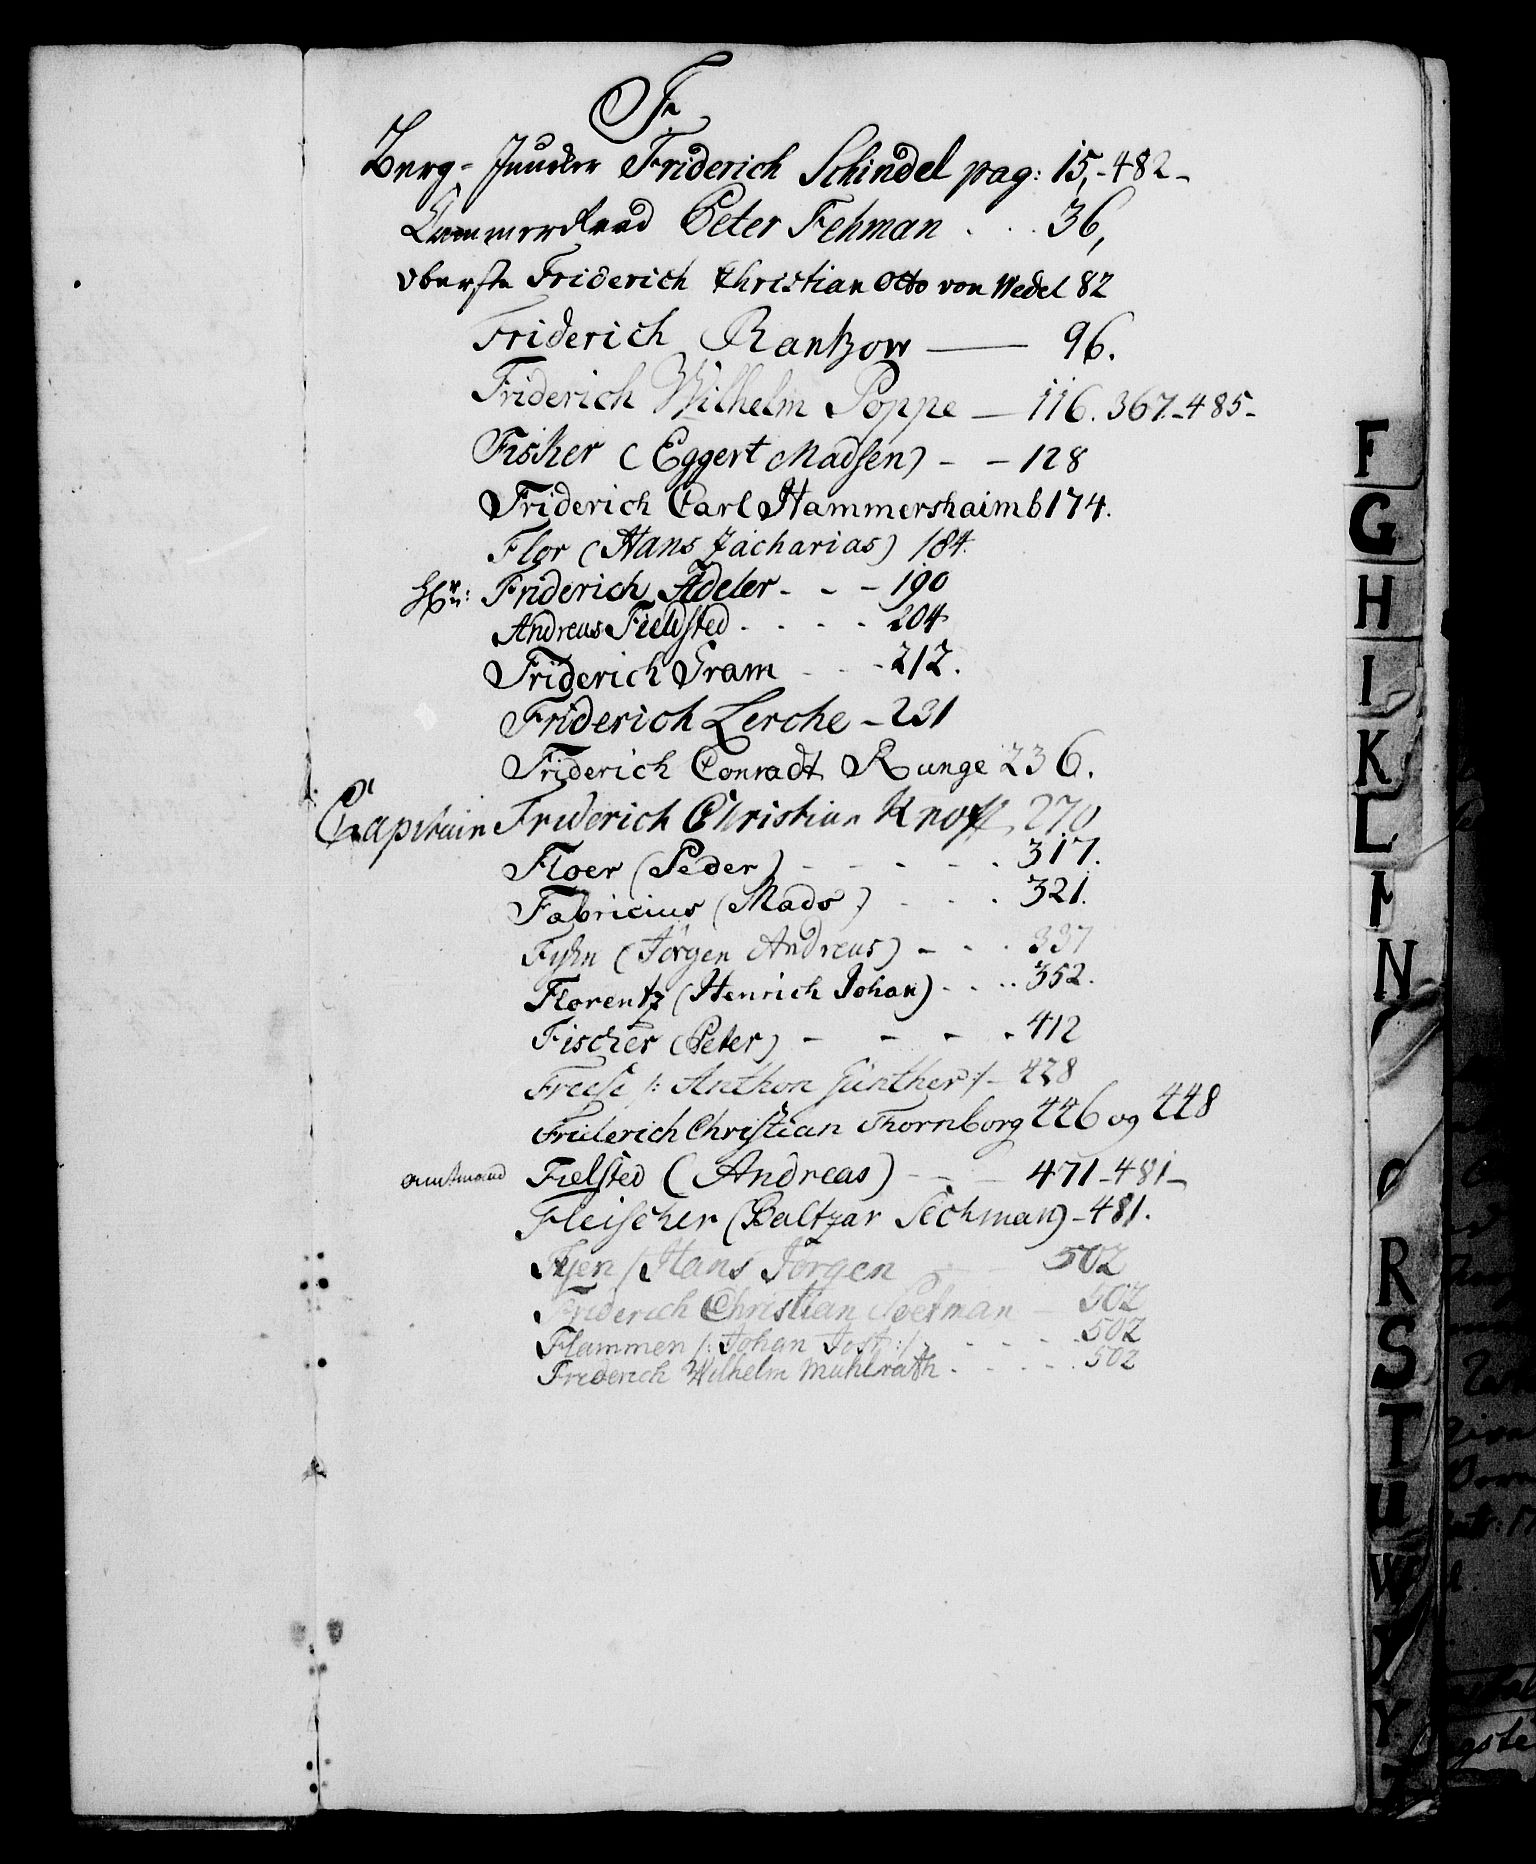 F
Berg-Juncker Friderich Schindel pag: 15,-482-
Cammerraad Peter Fehman . . . 36,
Oberste Friderich Christian Otto von Wedel 82
Friderich Rantzow — 96.
Friderich Wilhelm Poppe — 116. 367.-485-
Fischer (Eggert Madsen) - - 128
Friderich Carl Hammershaimb 174.
Flor (Hans Zacharias) 184.
Hr: Friderich Adeler - - - 190
Andreas Fieldsted . . . . 204
Friderich Gram - - - 212.
Friderich Lerche - 231
Friderich Conradt Runge 236.
Capitain Friderich Christian Knoff, 270
Floer (Peder) - - - - . 317.
Fabricius (Mads) . . . 321.
Fyhn (Jörgen Andreas) - - . 337
Florentz (Henrich Johan) . . . . 352.
Fischer (Peter) - - - . 412
Freese /: Anthon Günther :/ - 428
Friderich Christian Thornborg 446 og 448
amtmand Fielsted (Andreas) - - - 471-481-
Fleischer (Baltzar Sechman) - 481.
Fyen /Hans Jörgen 502
Friderich Christian - 502
Flammen /: Johan Jost :/ - - - . 502
Friderich Wilhelm Muhlrath . - - - . 502
F
G
H
I
K
L
N
R
S
T
U
W
Y